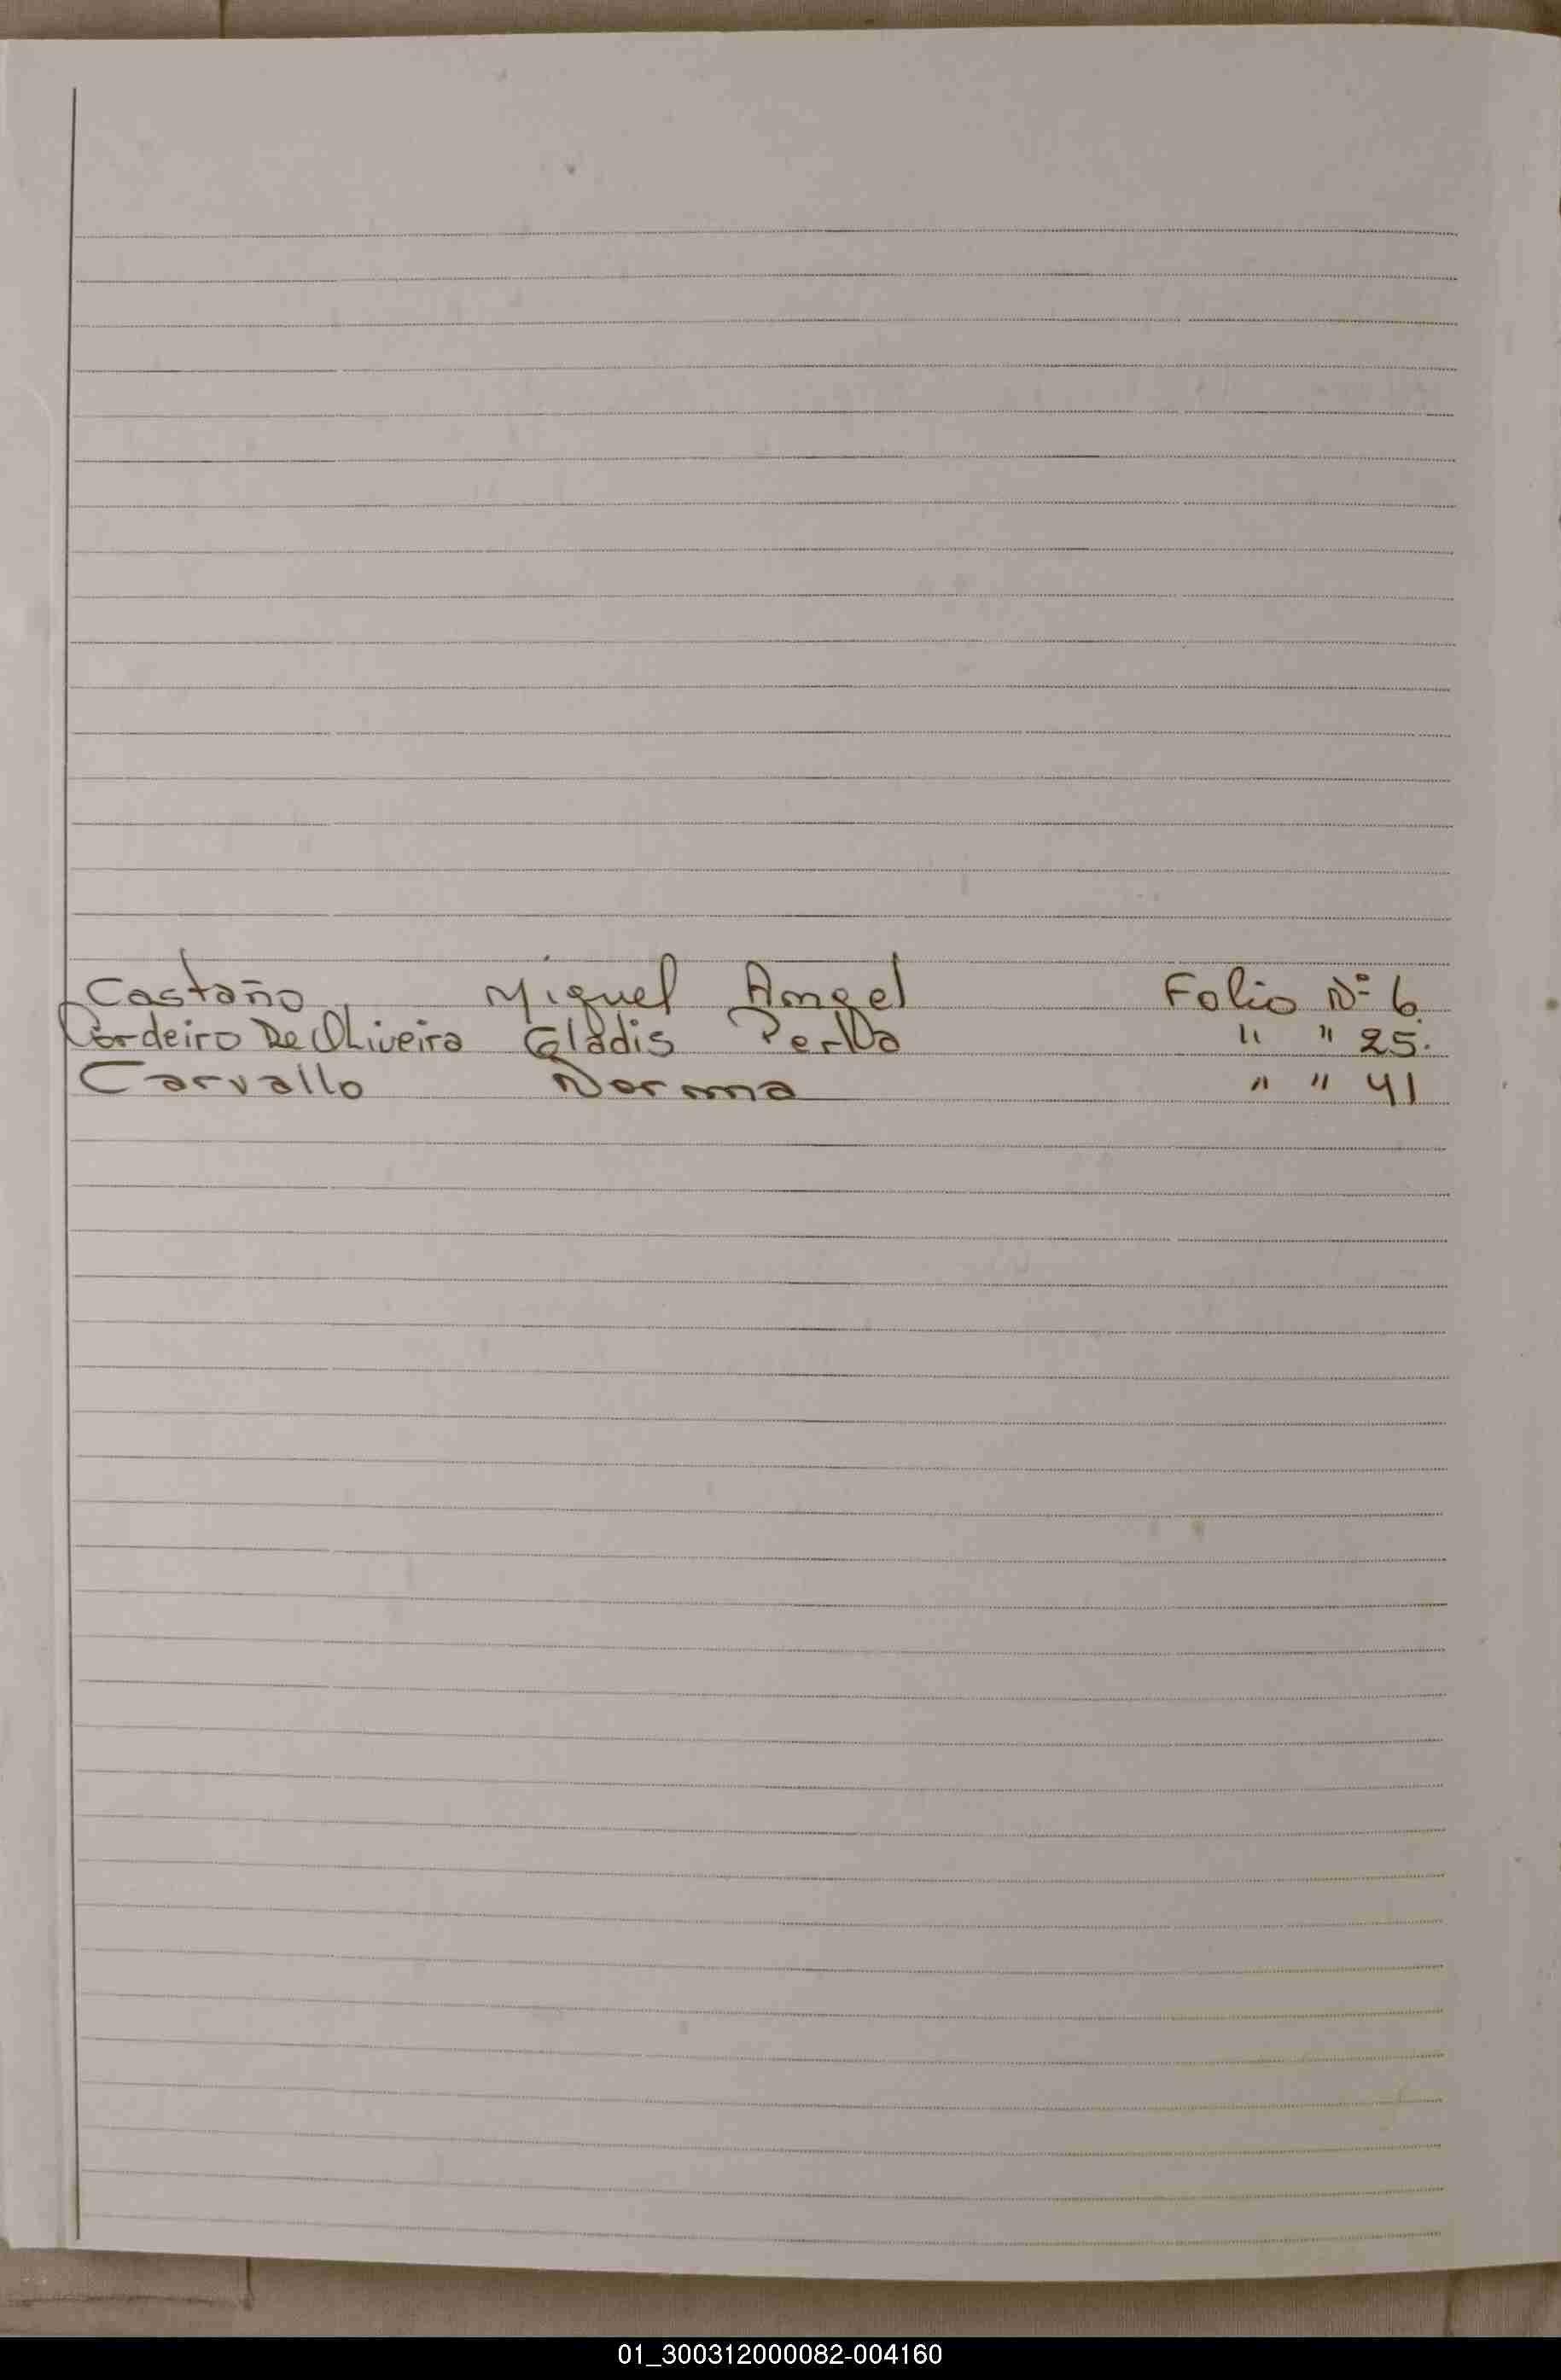 Castaño Miguel Angel Folio Nº 6
Cordeiro De Oliveira Gladis Perla " " 25.
Carvallo Norma " " 41
01_300312000082-004160